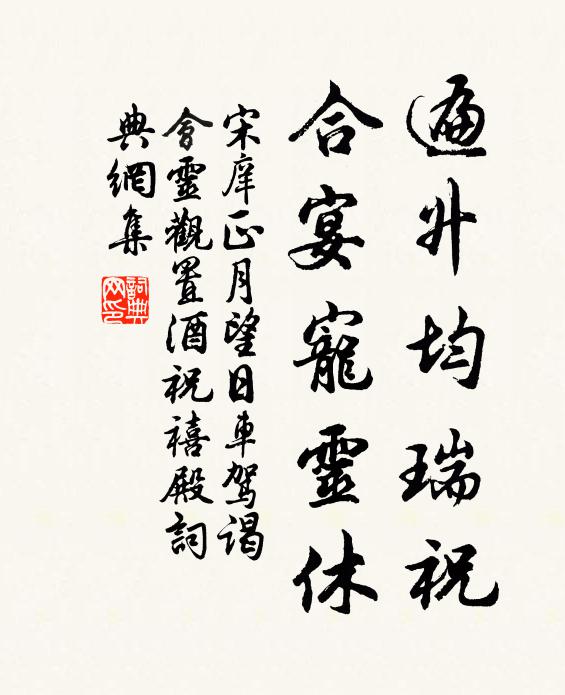 遍升均瑞祝
合宴寵靈休
宋庠正月望日車駕謁
會靈觀置酒祝禧殿詞
典網集
詞典網印